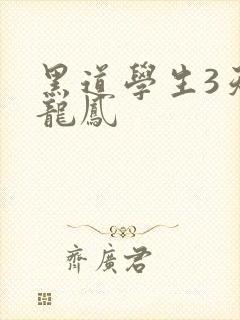 黑道學生3
龍鳳
齊廣君